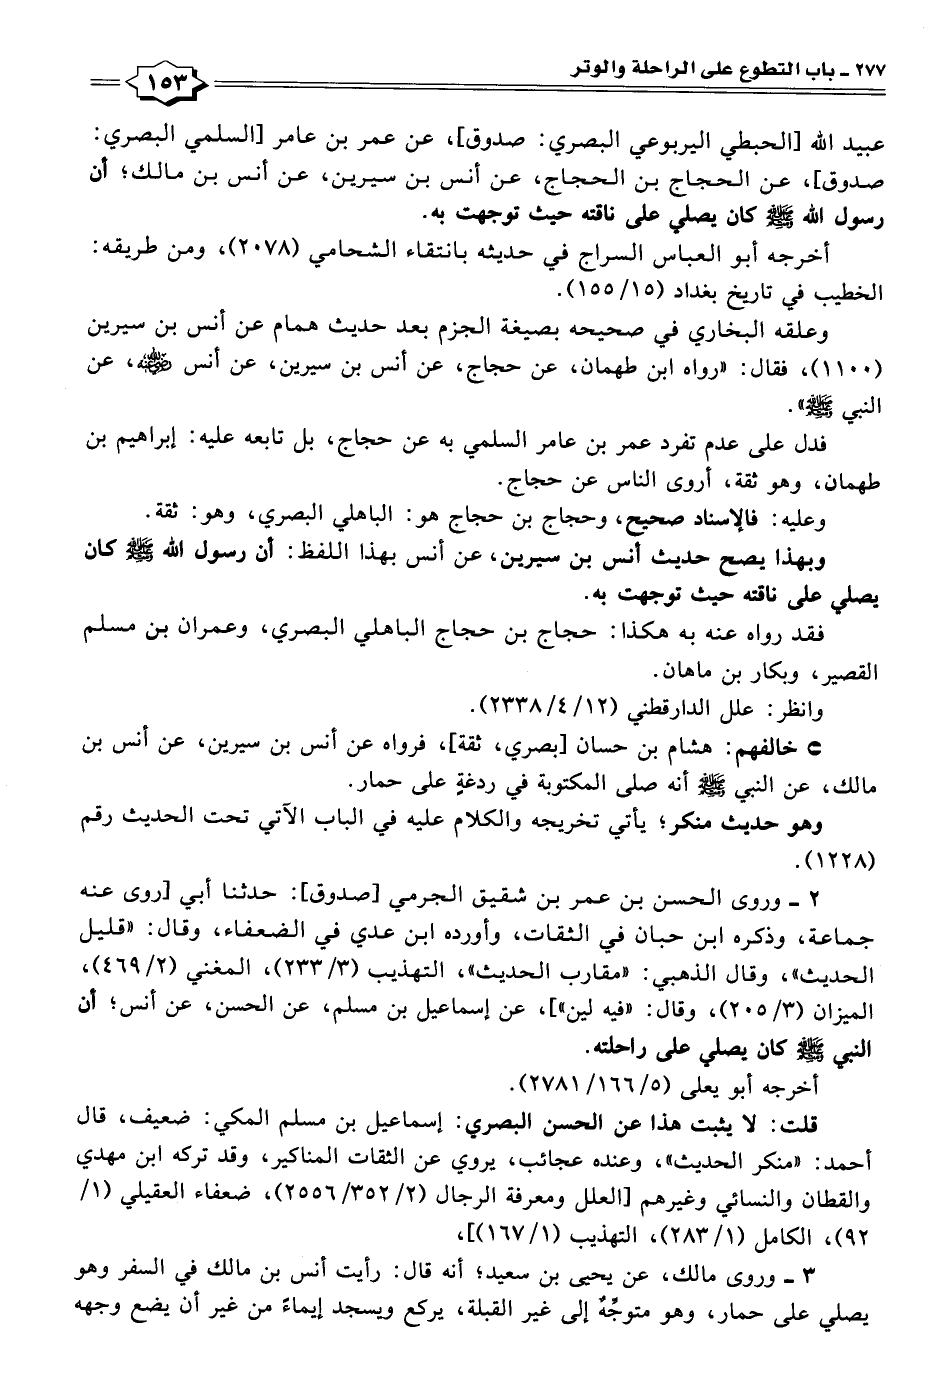 ٢٧٧ - باب التطوع على الراحلة والوتر
١٥٣
عبيد الله [الحبطي اليربوعي البصري: صدوق]، عن عمر بن عامر [السلمي البصري:
صدوق]، عن الحجاج بن الحجاج، عن أنس بن سيرين، عن أنس بن مالك؛ أن
رسول الله ﷺ كان يصلي على ناقته حيث توجهت به.
أخرجه أبو العباس السراج في حديثه بانتقاء الشحامي (٢٠٧٨)، ومن طريقه:
الخطيب في تاريخ بغداد (١٥/ ١٥٥).
وعلقه البخاري في صحيحه بصيغة الجزم بعد حديث همام عن أنس بن سيرين
(١١٠٠)، فقال: «رواه ابن طهمان، عن حجاج، عن أنس بن سيرين، عن أنس رضي الله عنه، عن
النبي ﷺ».
فدل على عدم تفرد عمر بن عامر السلمي به عن حجاج، بل تابعه عليه: إبراهيم بن
طهمان، وهو ثقة، أروى الناس عن حجاج.
وعليه: فالإسناد صحيح، وحجاج بن حجاج هو: الباهلي البصري، وهو: ثقة.
وبهذا يصح حديث أنس بن سيرين، عن أنس بهذا اللفظ: أن رسول الله ﷺ كان
يصلي على ناقته حيث توجهت به.
فقد رواه عنه به هكذا: حجاج بن حجاج الباهلي البصري، وعمران بن مسلم
القصير، وبكار بن ماهان.
وانظر: علل الدارقطني (١٢/ ٤/ ٢٣٣٨).
⊂ خالفهم: هشام بن حسان [بصري، ثقة]، فرواه عن أنس بن سيرين، عن أنس بن
مالك، عن النبي ﷺ أنه صلى المكتوبة في ردغةٍ على حمار.
وهو حديث منكر؛ يأتي تخريجه والكلام عليه في الباب الآتي تحت الحديث رقم
(١٢٢٨).
٢ - وروى الحسن بن عمر بن شقيق الجرمي [صدوق]: حدثنا أبي [روى عنه
جماعة، وذكره ابن حبان في الثقات، وأورده ابن عدي في الضعفاء، وقال: «قليل
الحديث»، وقال الذهبي: «مقارب الحديث»، التهذيب (٣/ ٢٣٣)، المغني (٢/ ٤٦٩)،
الميزان (٣/ ٢٠٥)، وقال: «فيه لين»]، عن إسماعيل بن مسلم، عن الحسن، عن أنس؛ أن
النبي ﷺ كان يصلي على راحلته.
أخرجه أبو يعلى (٥/ ١٦٦/ ٢٧٨١).
قلت: لا يثبت هذا عن الحسن البصري: إسماعيل بن مسلم المكي: ضعيف، قال
أحمد: «منكر الحديث»، وعنده عجائب، يروي عن الثقات المناكير، وقد تركه ابن مهدي
والقطان والنسائي وغيرهم [العلل ومعرفة الرجال (٢/ ٣٥٢/ ٢٥٥٦)، ضعفاء العقيلي (١/
٩٢)، الكامل (١/ ٢٨٣)، التهذيب (١/ ١٦٧)]،
٣ - وروى مالك، عن يحيى بن سعيد؛ أنه قال: رأيت أنس بن مالك في السفر وهو
يصلي على حمار، وهو متوجِّهٌ إلى غير القبلة، يركع ويسجد إيماءً من غير أن يضع وجهه